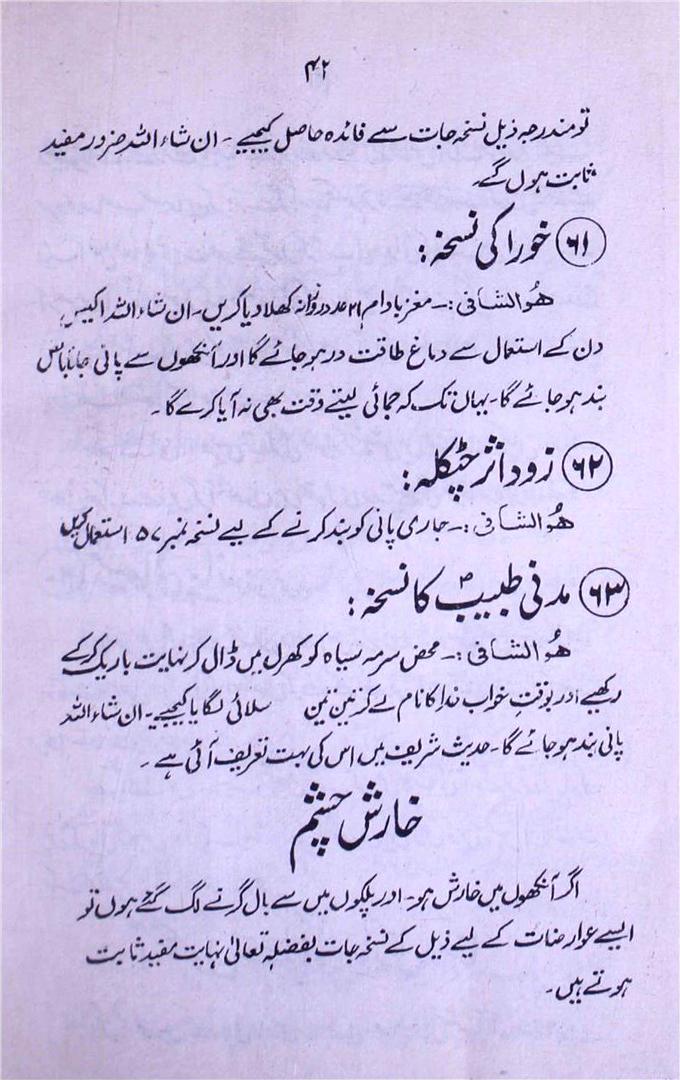 ۴۲
تو مندرجہ ذیل نسخہ جات سے فائدہ حاصل کیجیے ۔ ان شاء اللہ ضرور مفید
ثابت ہوں گے۔
۶۱ خوراکی نسخہ :
ھُوالشافی :۔ مغز بادام ۲۱ عدد روزانہ کھلا دیا کریں۔ ان شاء اللہ اکیس
دن کے استعمال سے دماغ طاقت ور ہو جائے گا اور آنکھوں سے پانی جانا بالکل
بند ہو جائے گا۔ یہاں تک کہ جمائی لیتے وقت بھی نہ آیا کرے گا ۔
۶۲ زود اثر چٹکلہ :
ھُوالشافی :۔ جاری پانی کو بند کرنے کے لیے نسخہ نمبر ۵۷ استعمال کریں
۶۳ مدنی طبیبؐ کا نسخہ :
ھُوالشافی :۔ محض سرمہ سیاہ کو کھرل میں ڈال کر نہایت باریک کر کے
رکھیے اور بوقتِ خواب خدا کا نام لے کر تین تین سلائی لگایا کیجیے۔ ان شاء اللہ
پانی بند ہو جائے گا۔ حدیث شریف میں اس کی بہت تعریف آئی ہے ۔
خارش چشم
اگر آنکھوں میں خارش ہو۔ اور پلکوں میں سے بال گرنے لگ گئے ہوں تو
ایسے عوارضات کے لیے ذیل کے نسخہ جات بفضلہٖ تعالیٰ نہایت مفید ثابت
ہوتے ہیں ۔